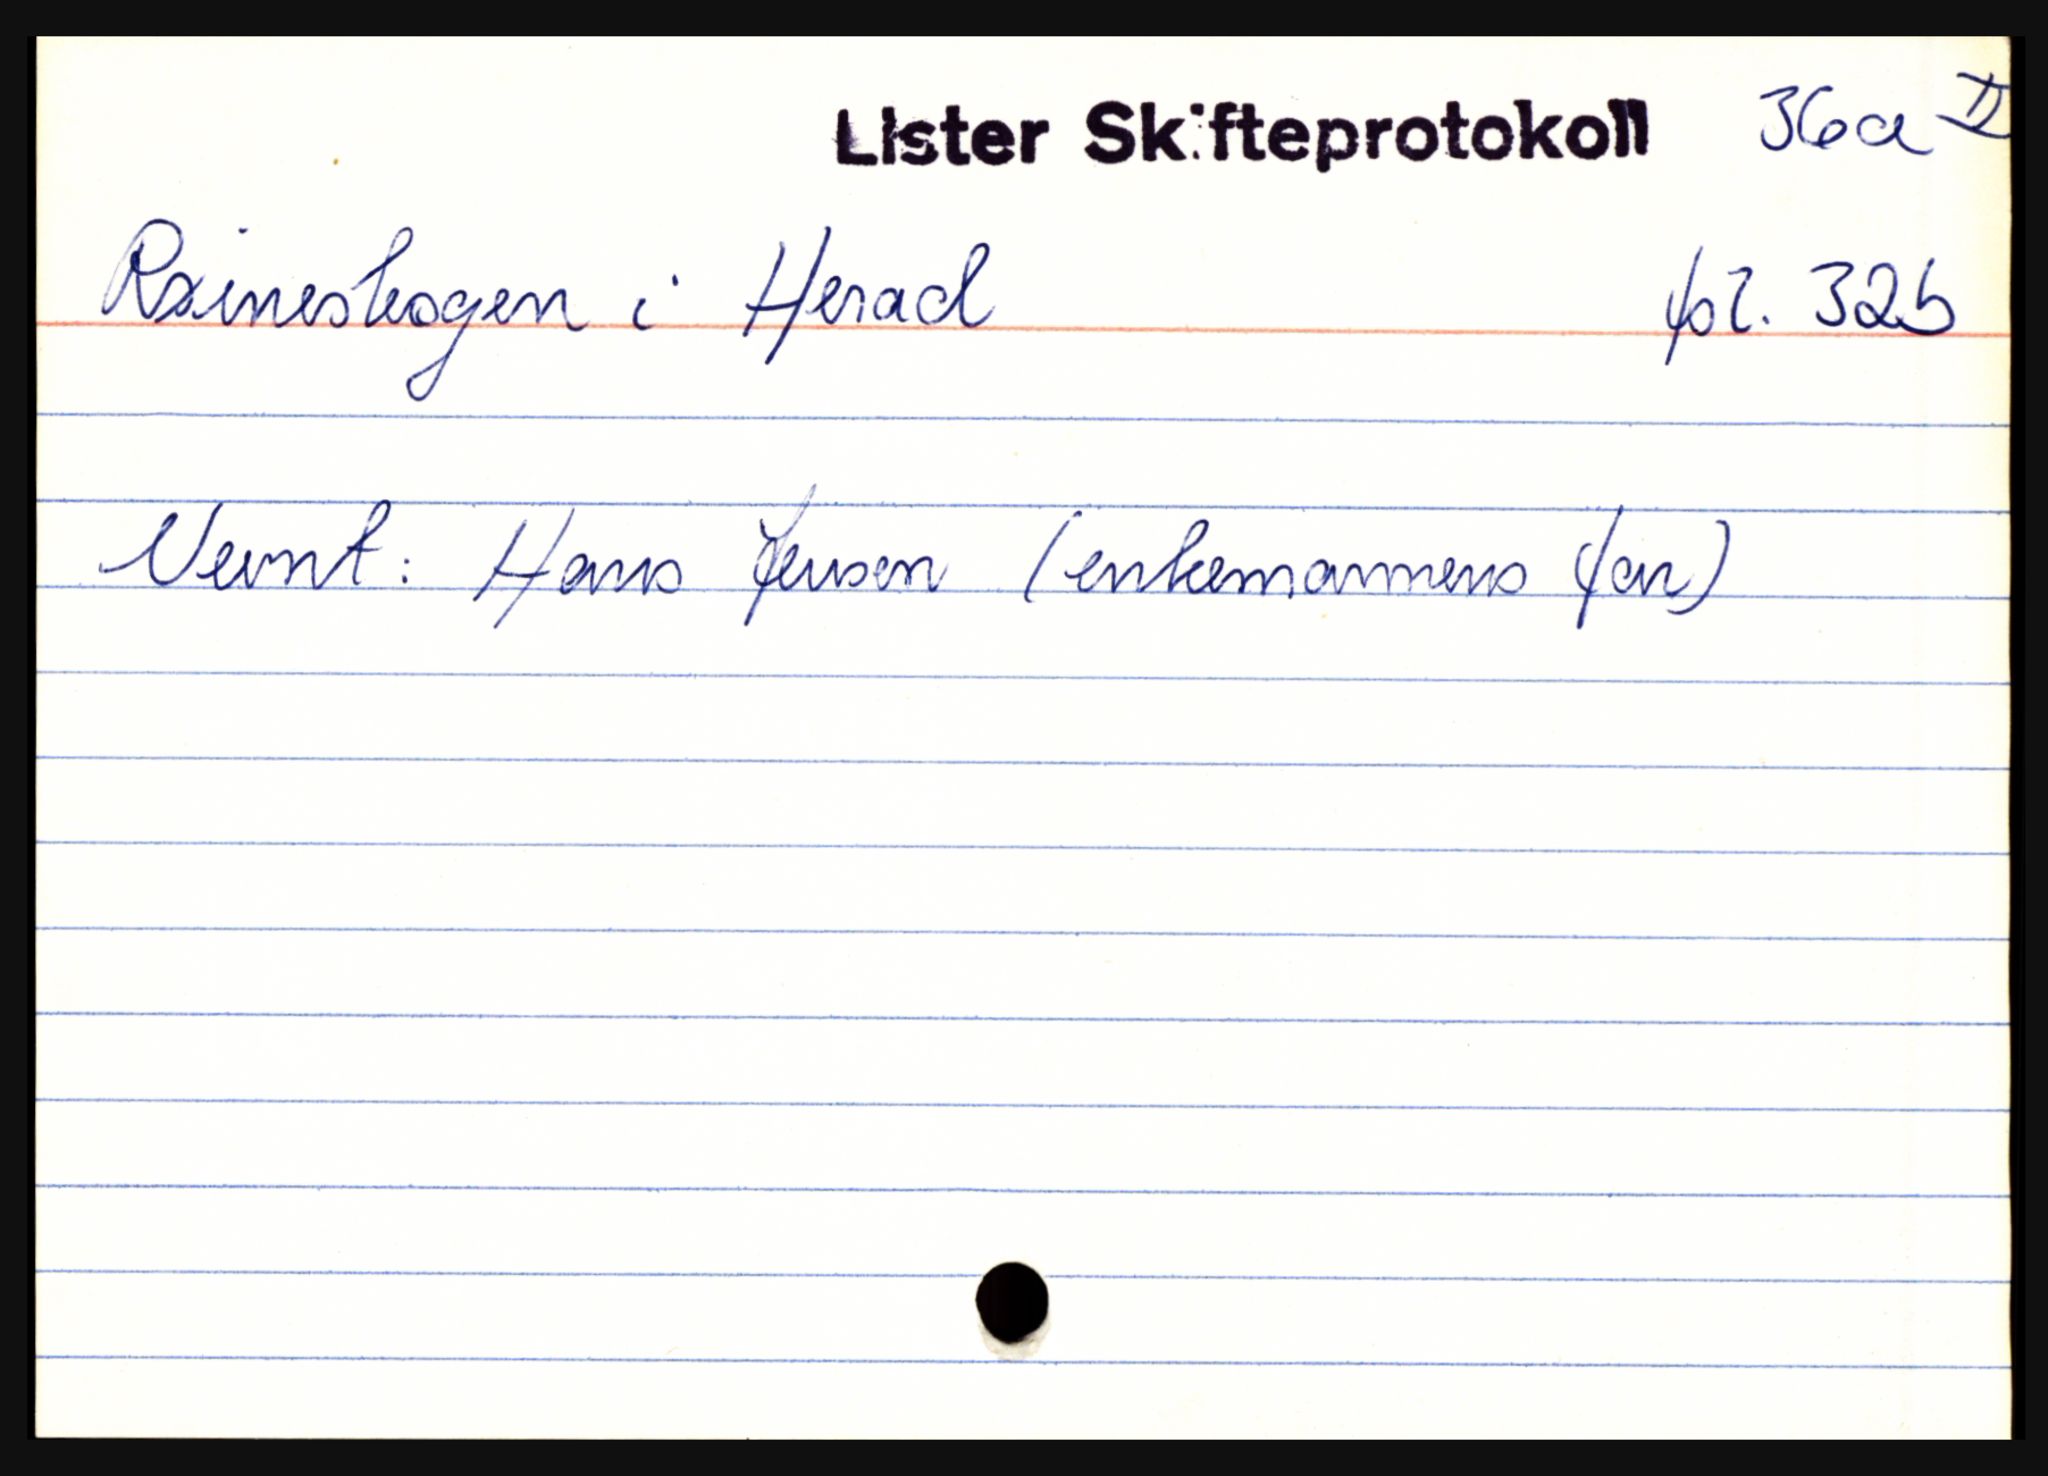 Lister Skifteprotokoll 36a II
Raineskogen i Herad fol. 32b
Nevnt: Hans Jensen (enkemannens far)